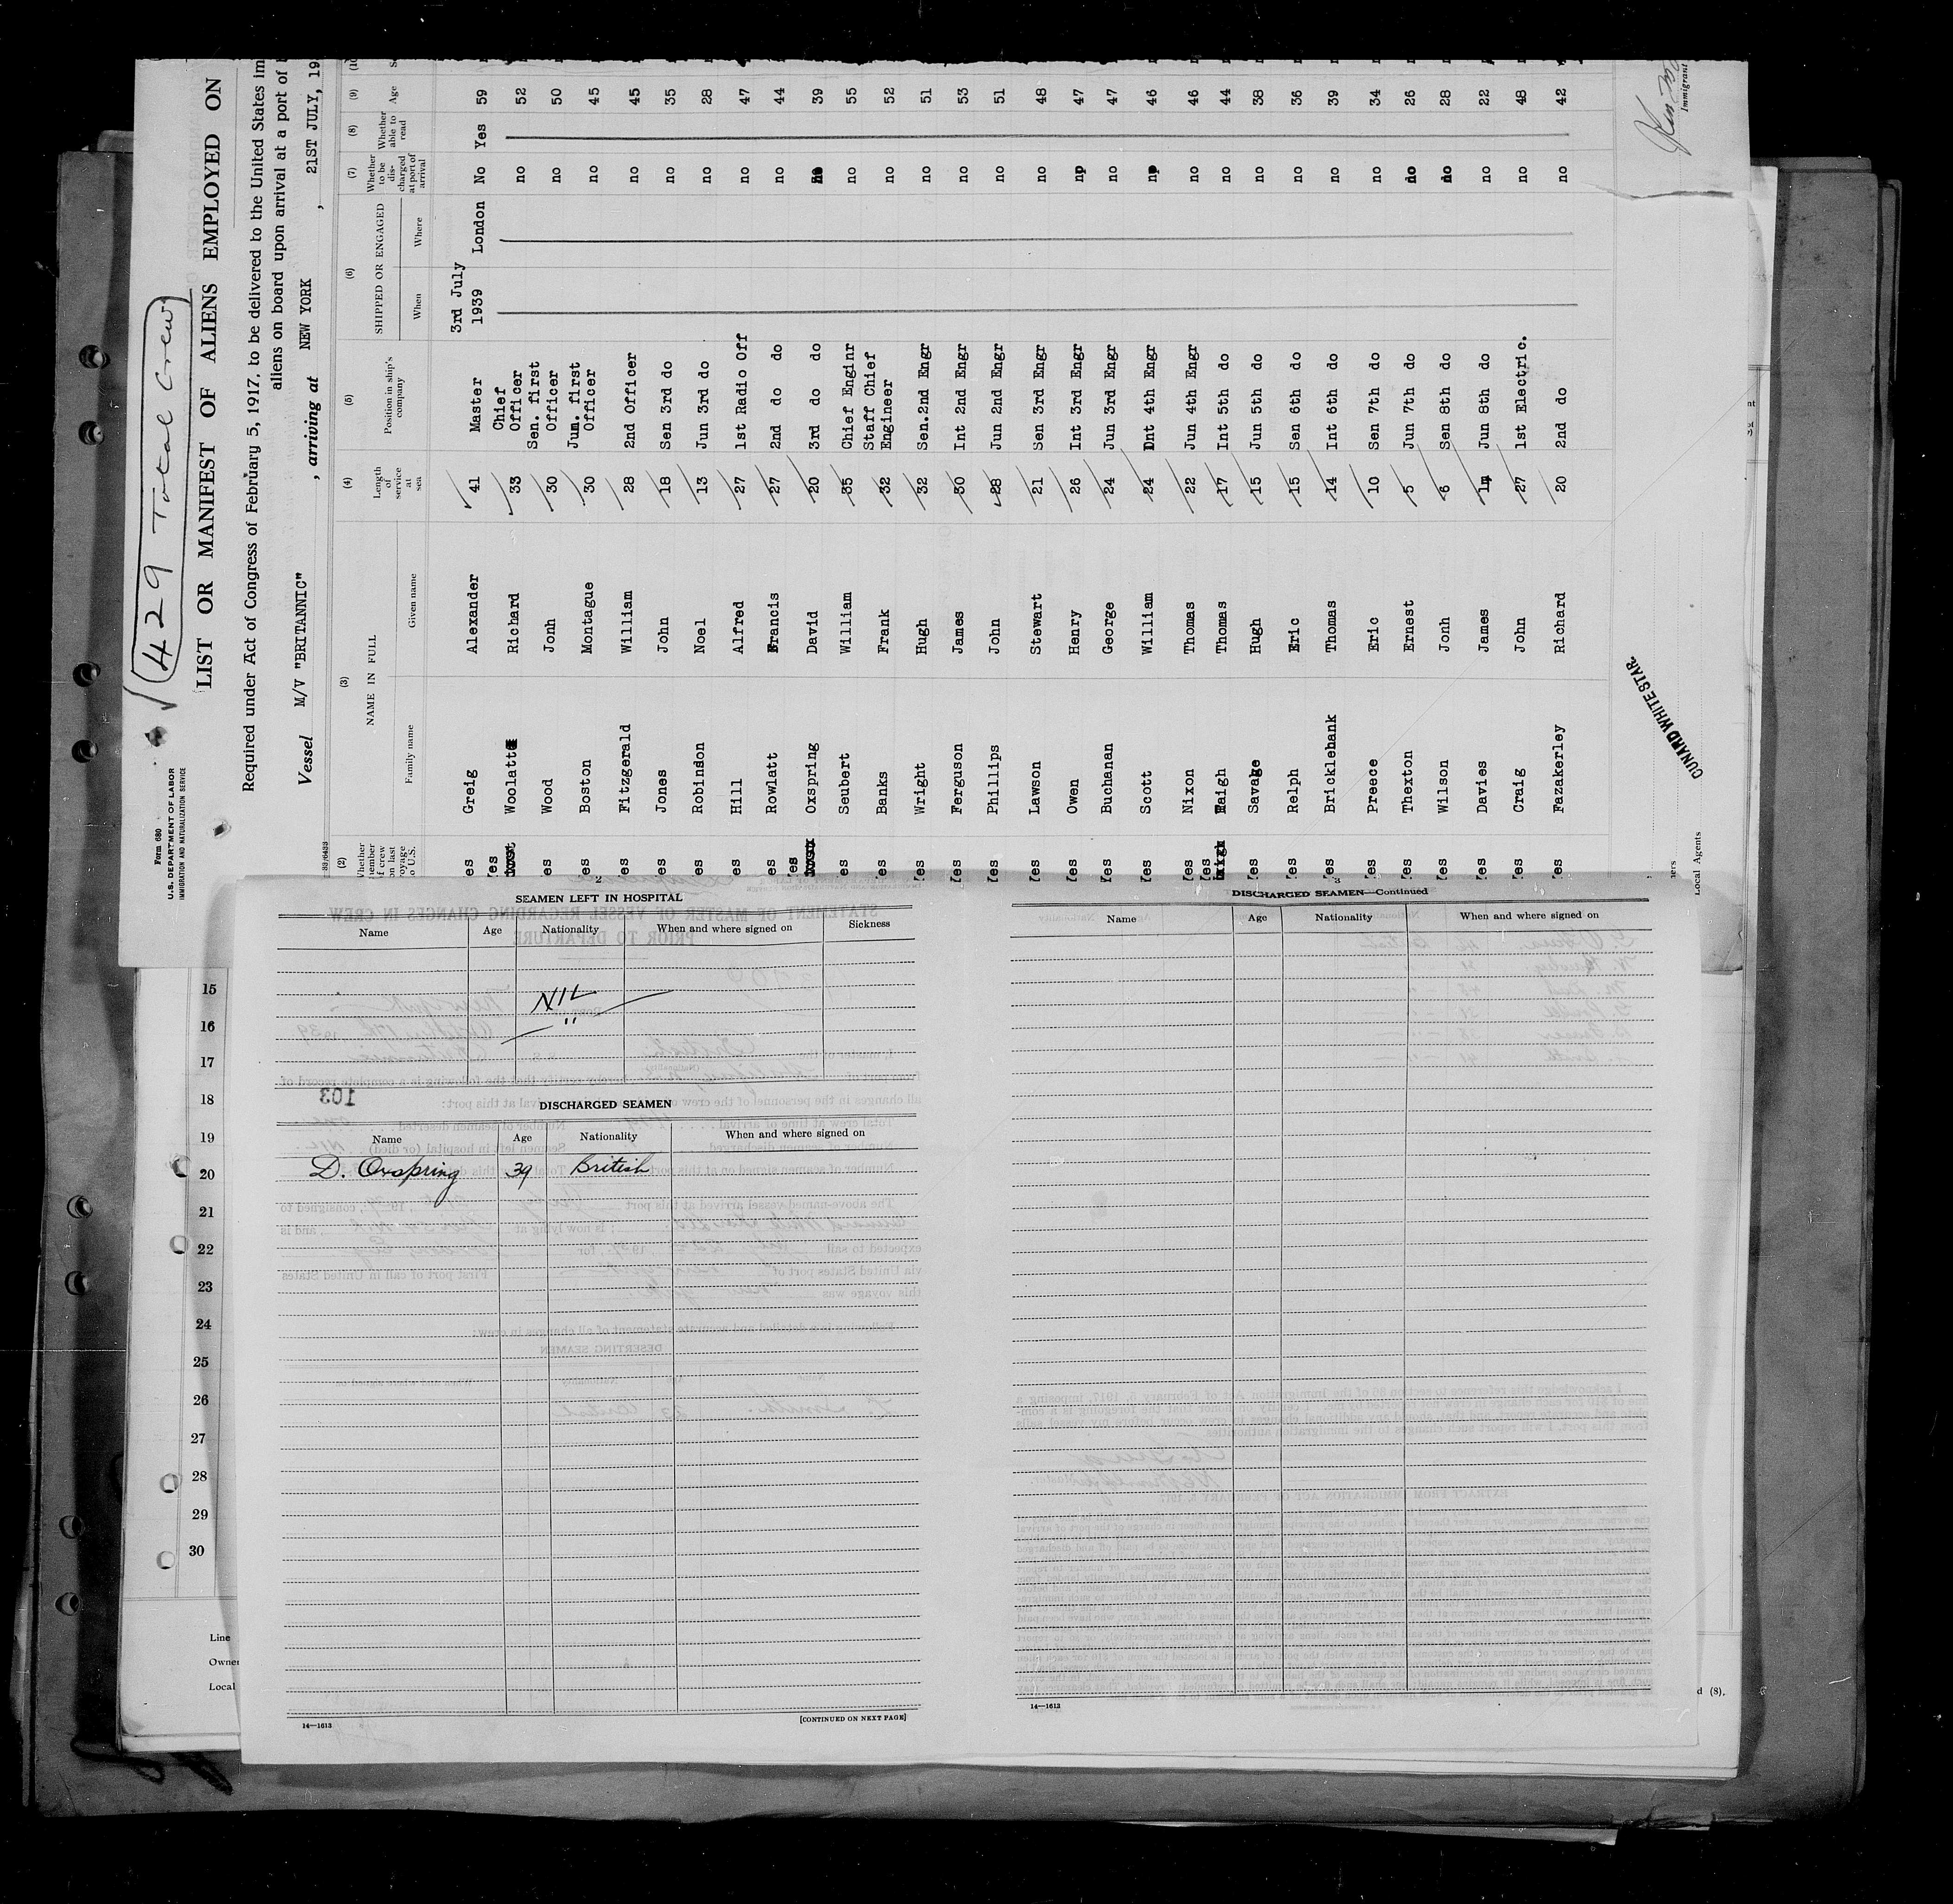 √ 429 Total Crew
Form 680
U.S. DEPARTMENT OF LABOR
IMMIGRATION AND NATURALIZATION SERVICE
LIST OR MANIFEST OF ALIENS EMPLOYED ON
Required under Act of Congress of February 5, 1917, to be delivered to the United States im
aliens on board upon arrival at a port of
Vessel M/V "BRITANNIC" , arriving at NEW YORK , 21ST JULY, 19
(2) (3) (4) (5) (6) (7) (8) (9) (10
Whether member of crew on last voyage to U.S. NAME IN FULL Length of service at sea Position in ship's company SHIPPED OR ENGAGED Whether to be discharged at port of arrival Whether able to read Age
Family name Given name When Where
es Greig Alexander 41 Master 3rd July 1939 London No Yes 59
es Woolatt Richard 33 Chief Officer no 52
es Wood Jonh 30 Sen. first Officer no 50
es Boston Montague 30 Jun. first Officer no 45
es Fitzgerald William 28 2nd Officer no 45
es Jones John 18 Sen 3rd do no 35
es Robinson Noel 13 Jun 3rd do no 28
es Hill Alfred 27 1st Radio Off no 47
es Rowlatt Francis 27 2nd do do no 44
es Oxspring David 20 3rd do do no 39
es Seubert William 35 Chief Enginr no 55
es Banks Frank 32 Staff Chief Engineer no 52
es Wright Hugh 32 Sen.2nd Engr no 51
es Ferguson James 30 Int 2nd Engr no 53
es Phillips John 28 Jun 2nd Engr no 51
es Lawson Stewart 21 Sen 3rd Engr no 48
es Owen Henry 26 Int 3rd Engr no 47
es Buchanan George 24 Jun 3rd Engr no 47
es Scott William 24 Int 4th Engr no 46
es Nixon Thomas 22 Jun 4th Engr no 46
es Haigh Thomas 17 Int 5th do no 44
es Savage Hugh 15 Jun 5th do no 38
es Relph Eric 15 Sen 6th do no 36
es Bricklebank Thomas 14 Int 6th do no 39
es Preece Eric 10 Sen 7th do no 34
es Thexton Ernest 5 Jun 7th do no 26
es Wilson Jonh 6 Sen 8th do no 28
es Davies James Jun 8th do no 22
es Craig John 27 1st Electric. no 48
es Fazakerley Richard 20 2nd do no 42
CUNARD WHITE STAR.
Local Agents
Immigrant
SEAMEN LEFT IN HOSPITAL
Name Age Nationality When and where signed on Sickness
NIL
"
103
DISCHARGED SEAMEN
Name Age Nationality When and where signed on
D. Oxspring 39 British
14—1613 [CONTINUED ON NEXT PAGE]
DISCHARGED SEAMEN—Continued
Name Age Nationality When and where signed on
14—1613
15
16
17
18
19
20
21
22
23
24
25
26
27
28
29
30
Line
Owner
Local
d (8).